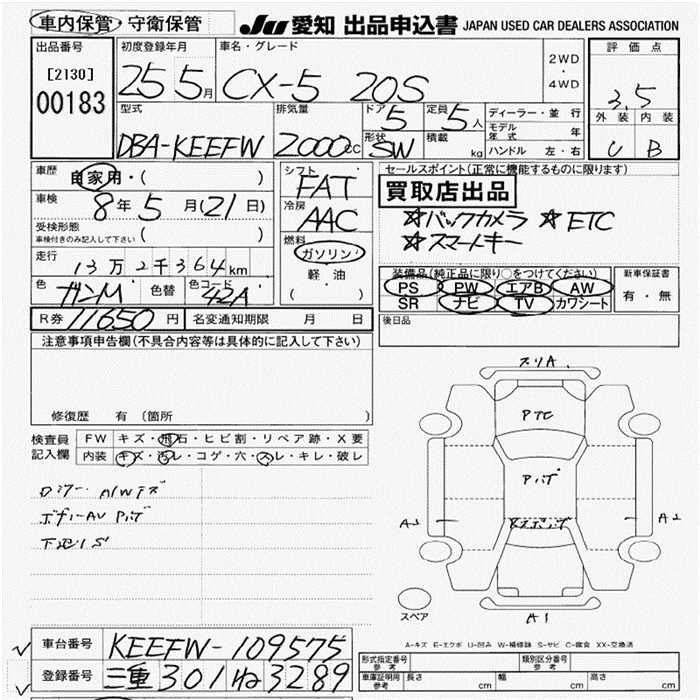 車内保管・守衛保管 JU 愛知 出品申込書 JAPAN USED CAR DEALERS ASSOCIATION
出品番号 初度登録年月 車名・グレード 2WD・4WD 評価点
[2130] 00183 25 5月 CX-5 20S 3.5
型式 排気量 ドア 5 定員 5人 ディーラー・並行 外装 内装
DBA-KEEFW 2000cc 形状 SW 積載 kg モデル年式 年 C B
ハンドル 左・右
車歴 自家用・( ) シフト FAT セールスポイント(正常に機能するものに限ります)
買取店出品
車検 8年5月(21日) 冷房 AAC ☆バックカメラ ☆ETC
受検形態 車検付きのみ記入して下さい ( ) ☆スマートキー
走行 13万2千364km 燃料 ガソリン・軽油 ( )
装備品(純正品に限り○をつけてください) 新車保証書
色 ガンM 色替 色コード 42A PS PW エアB AW 有・無
SR ナビ TV カワシート
R券 11650円 名変通知期限 月 日 後日品
注意事項申告欄(不具合内容等は具体的に記入して下さい)
修復歴 有 (箇所
検査員記入欄 FW キズ・飛石・ヒビ割・リペア跡・X要
内装 キズ・汚レ・コゲ・穴・スレ・キレ・破レ
A/Wキズ
下廻りS
スリA
PTC
A2 A2
スペア A1
A-キズ E-エクボ U-凹み W-補修跡 S-サビ C-腐食 XX-交換済
車台番号 KEEFW-109575
登録番号 三重 301 ね 3289
形式指定番号 参考 類別区分番号 参考
車庫証明用 参考 長さ cm 幅 cm 高さ cm